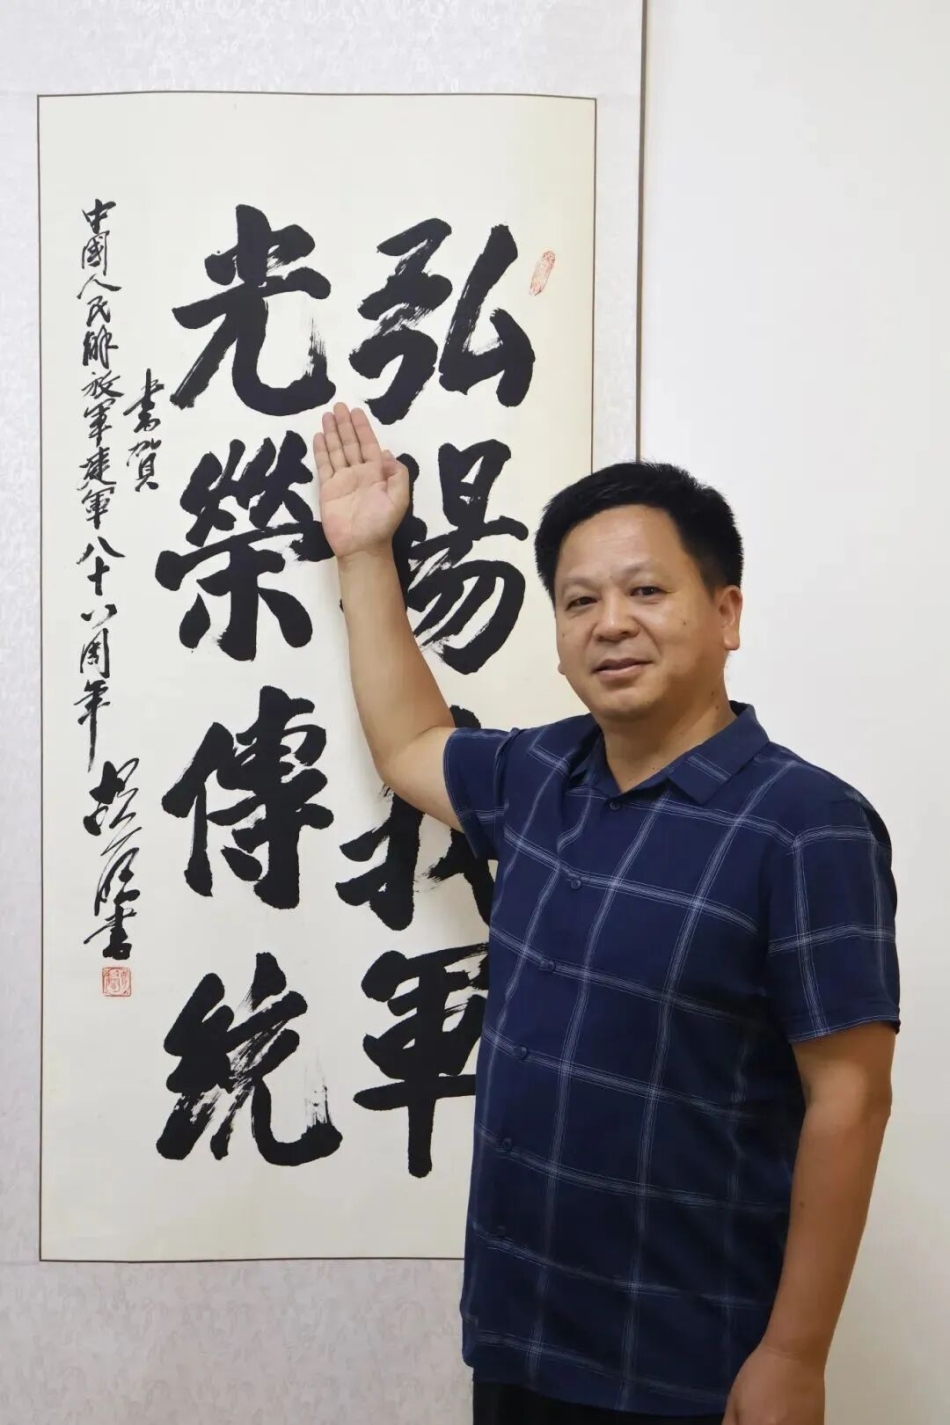 弘揚我軍
光榮傳統
書賀
中國人民解放軍建軍八十八周年